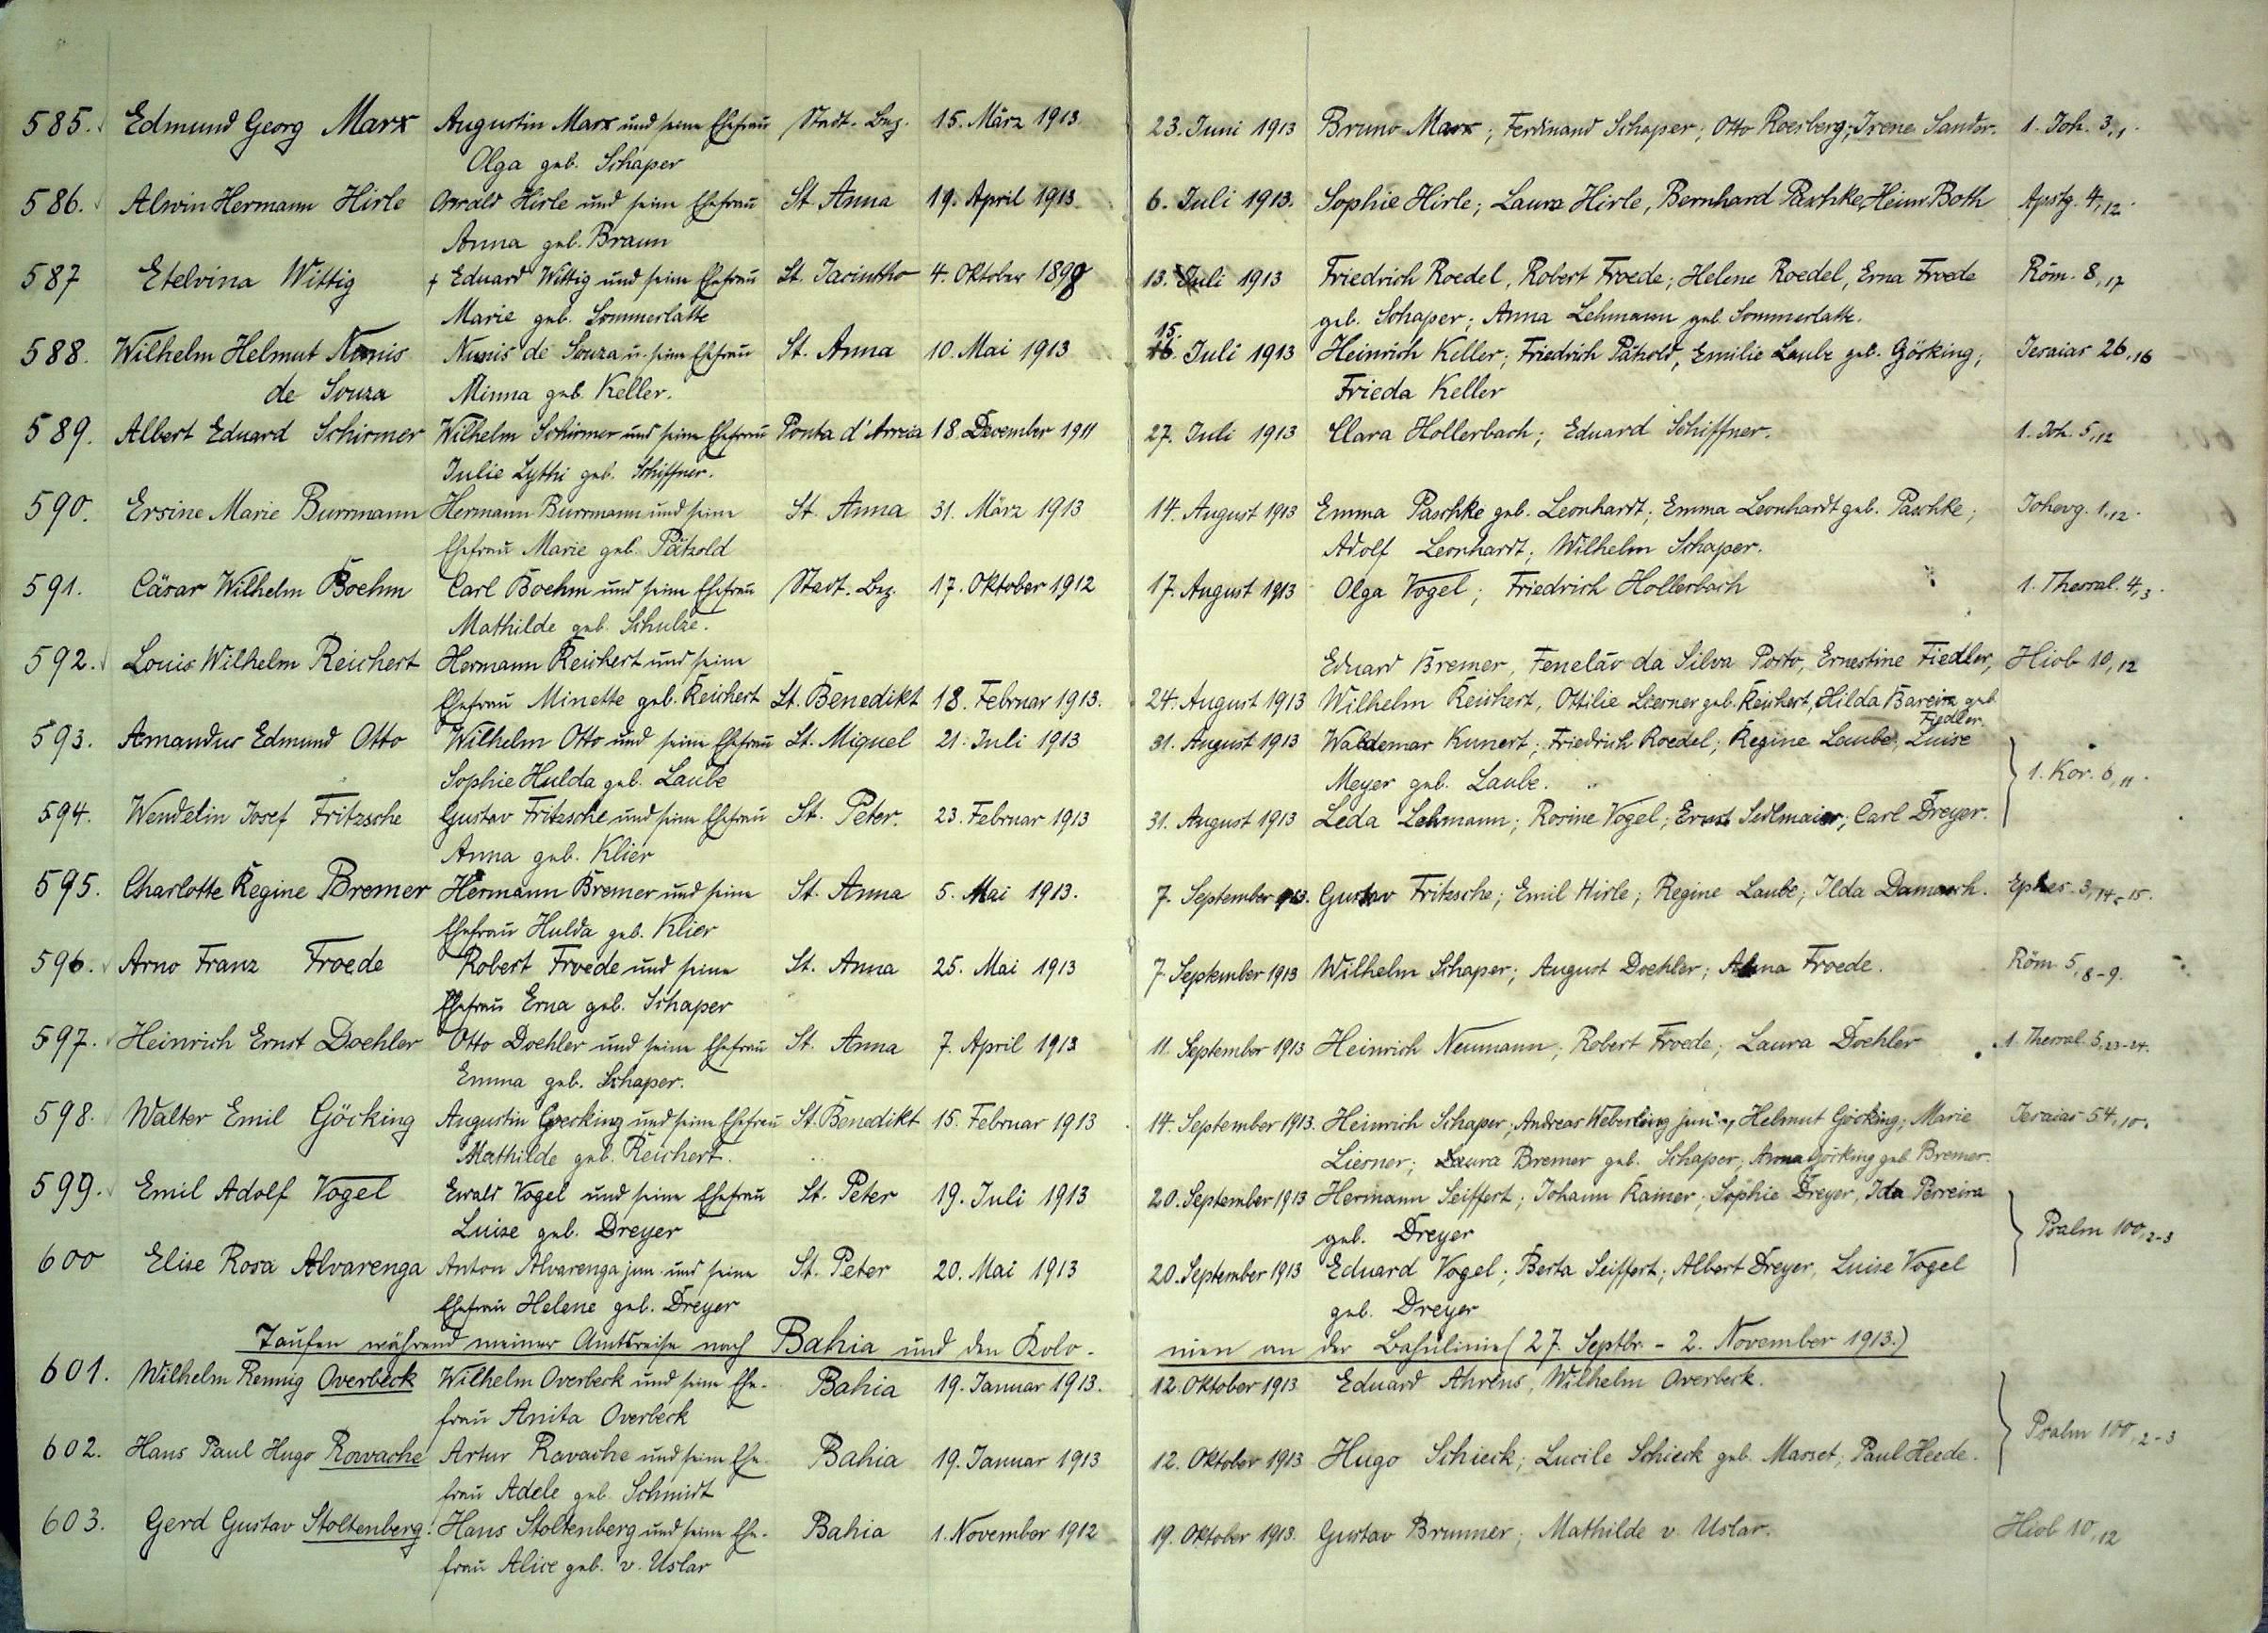 585. Edmund Georg Marx Augustin Marx und seine Ehefrau Stadt-Bez. 15. März 1913 23. Juni 1913 Bruno Marx; Ferdinand Schaper; Otto Roesberg; Irene Sandor. 1. Joh. 3,1.
Olga geb. Schaper
586. Alwin Hermann Hirle Oswald Hirle und seine Ehefrau St. Anna 19. April 1913. 6. Juli 1913. Sophie Hirle; Laura Hirle, Bernhard Paschke, Heinr Both Apstg. 4,12.
Anna geb. Braun
587 Etelvina Wittig + Eduard Wittig und seine Ehefrau St. Jacintho 4. Oktober 1898 13. Juli 1913 Friedrich Roedel, Robert Froede; Helene Roedel, Erna Froede Röm. 8,17
Marie geb. Sommerlatte geb. Schaper; Anna Lehmann geb. Sommerlatte.
588. Wilhelm Helmut Nunis Nunis de Souza u. seine Ehefrau St. Anna 10. Mai 1913 15. Juli 1913 Heinrich Keller; Friedrich Pätzold, Emilie Laube geb. Göcking; Jesaias 26,16
de Souza Minna geb. Keller. Frieda Keller
589. Albert Eduard Schirmer Wilhelm Schirmer und seine Ehefrau Ponta d'Areia 18. December 1911 27. Juli 1913 Clara Hollerbach; Eduard Schiffner. 1. Joh. 5,12
Julie Lythi geb. Schiffner.
590. Ersine Marie Burrmann Hermann Burrmann und seine St. Anna 31. März 1913 14. August 1913 Emma Paschke geb. Leonhardt; Emma Leonhardt geb. Paschke; Johevg. 1,12.
Ehefrau Marie geb. Pätzold Adolf Leonhardt; Wilhelm Schaper.
591. Cäsar Wilhelm Boehm Carl Boehm und seine Ehefrau Stadt-Bez. 17. Oktober 1912 17. August 1913 Olga Vogel; Friedrich Hollerbach 1. Thessal. 4,3.
Mathilde geb. Schulze.
592. Louis Wilhelm Reichert Hermann Reichert und seine Eduard Bremer, Feneláv da Silva Porto, Ernestine Fiedler, Hiob 10,12
Ehefrau Minette geb. Reichert St. Benedikt 18. Februar 1913. 24. August 1913 Wilhelm Reichert, Ottilie Liesner geb. Reichert, Hilda Bareira geb
Fiedler
593. Amandus Edmund Otto Wilhelm Otto und seine Ehefrau St. Miguel 21. Juli 1913 31. August 1913 Waldemar Kunert; Friedrich Roedel; Regine Laube, Luise
Sophie Hulda geb. Laube Meyer geb. Laube. 1. Kor. 6,11.
594. Wendelin Josef Fritzsche Gustav Fritzsche und seine Ehefrau St. Peter. 23. Februar 1913 31. August 1913 Leda Lehmann; Rosine Vogel; Ernst Sedlmaier; Carl Dreyer.
Anna geb. Klier
595. Charlotte Regine Bremer Hermann Bremer und seine St. Anna 5. Mai 1913. 7. September 1913. Gustav Fritzsche; Emil Hirle; Regine Laube; Ilda Damasch. Ephes. 3,14-15.
Ehefrau Hulda geb. Klier
596. Arno Franz Froede Robert Froede und seine St. Anna 25. Mai 1913 7 September 1913 Wilhelm Schaper; August Doehler; Alma Froede. Röm. 5,8-9.
Ehefrau Erna geb. Schaper
597. Heinrich Ernst Doehler Otto Doehler und seine Ehefrau St. Anna 7. April 1913 11. September 1913 Heinrich Neumann; Robert Froede; Laura Doehler 1. Thessal. 5,23-24.
Emma geb. Schaper.
598. Walter Emil Göcking Augustin Goecking und seine Ehefrau St. Benedikt 15. Februar 1913 14. September 1913. Heinrich Schaper; Andreas Weberling jun., Helmut Göcking; Marie Jesaias 54,10.
Mathilde geb. Reichert. Liesner; Laura Bremer geb. Schaper; Anna Göcking geb. Bremer.
599. Emil Adolf Vogel Ewald Vogel und seine Ehefrau St. Peter 19. Juli 1913 20. September 1913 Hermann Seiffert; Johann Kainer; Sophie Dreyer, Ida Perreira
Luise geb. Dreyer geb. Dreyer Psalm 100,2-3
600 Elise Rosa Alvarenga Anton Alvarenga jun. und seine St. Peter 20. Mai 1913 20. September 1913 Eduard Vogel; Berta Seiffert; Albert Dreyer, Luise Vogel
Ehefrau Helene geb. Dreyer geb. Dreyer
Taufen während meiner Amtsreise nach Bahia und den Kolo- nien an der Bahnlinie (27. Septbr. - 2. November 1913.)
601. Wilhelm Rennig Overbeck Wilhelm Overbeck und seine Ehe- Bahia 19. Januar 1913. 12. Oktober 1913 Eduard Ahrens, Wilhelm Overbeck.
frau Anita Overbeck Psalm 100,2-3
602. Hans Paul Hugo Ravache Artur Ravache und seine Ehe- Bahia 19. Januar 1913 12. Oktober 1913 Hugo Schieck; Lucile Schieck geb. Masset; Paul Heede.
frau Adele geb. Schmidt
603. Gerd Gustav Stoltenberg. Hans Stoltenberg und seine Ehe- Bahia 1. November 1912 19. Oktober 1913. Gustav Brunner; Mathilde v. Uslar. Hiob 10,12
frau Alice geb. v. Uslar